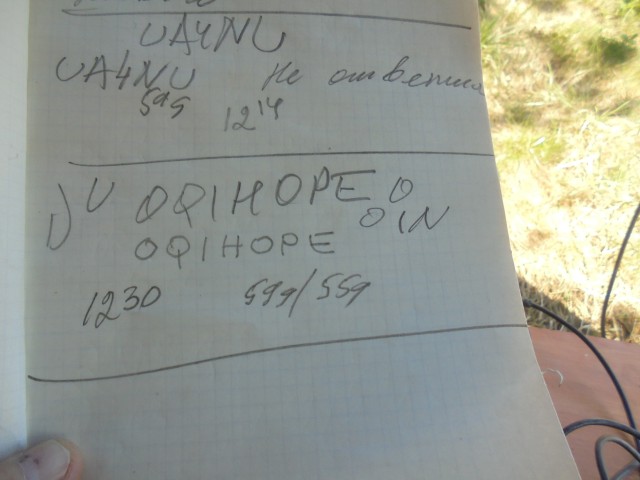 UA4NU
UA4NU Не ответил
599
12¹⁴
1) U OQ1HOPE O
O IN
OQ1HOPE
12³⁰ 599/559